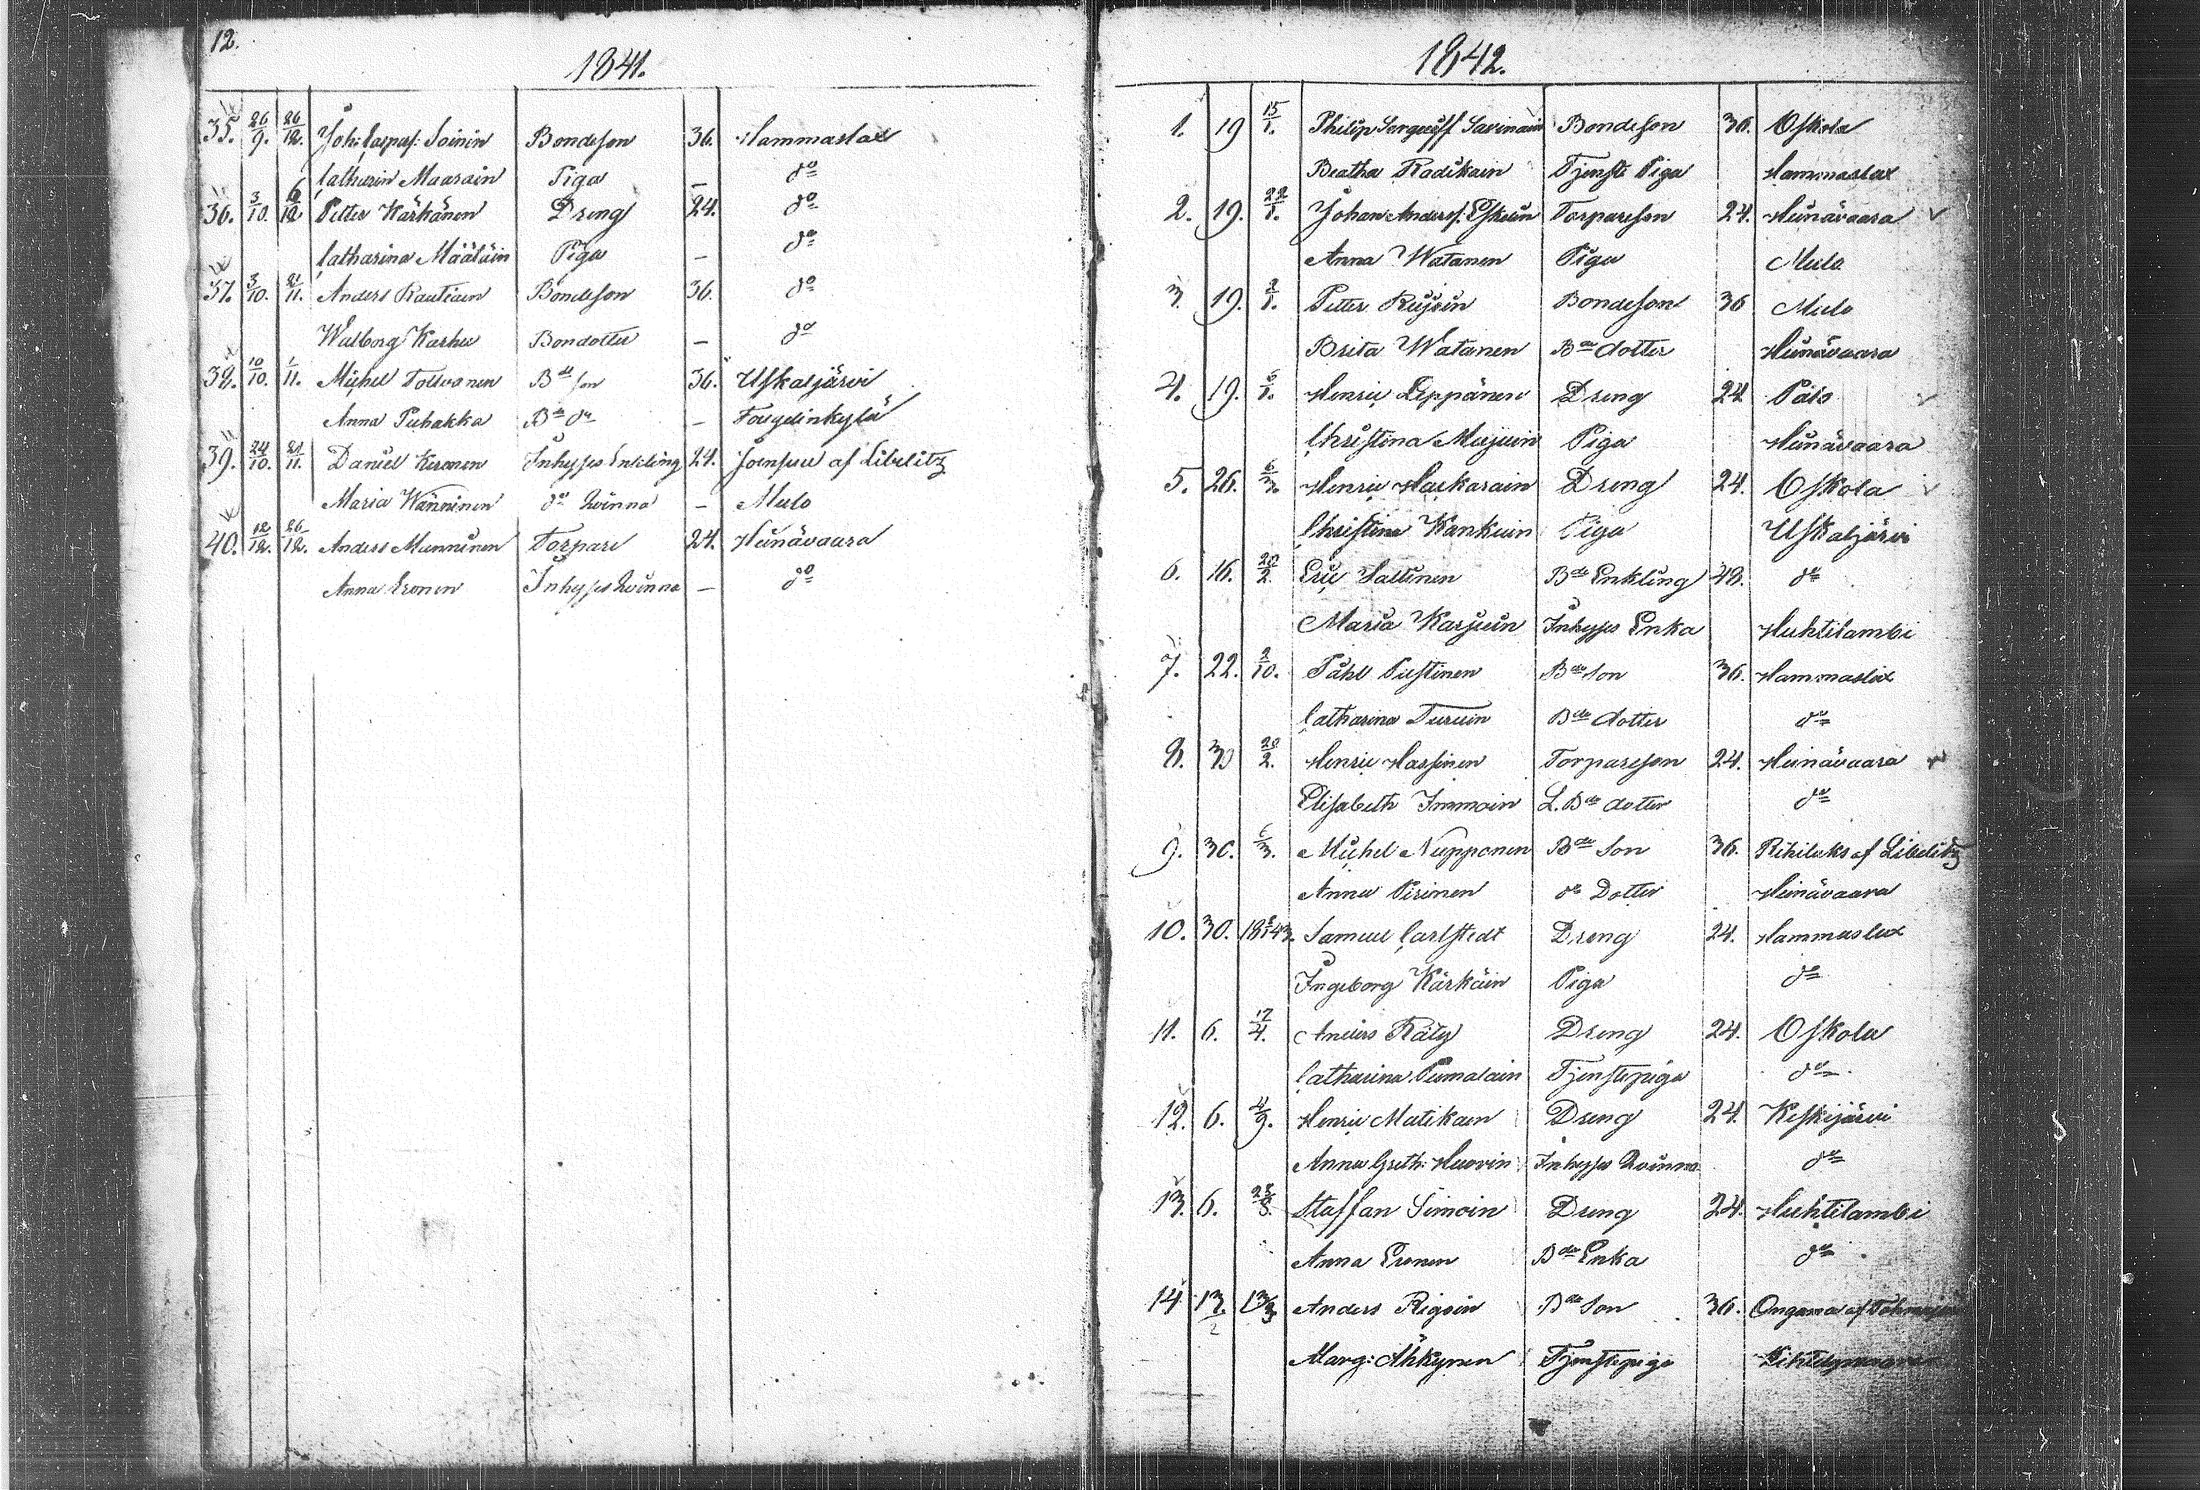 12.
1841.
35. 26/9. 26/12. Joh: Caspers: Soinin Bondeson 36. Hammaslax
Catharin Maarain Piga — do
36. 3/10. 6/12 Petter Kärkänen Dreng 24. do
Catharina Määläin Piga — do
37. 3/10. 21/11. Anders Rautiain Bondeson 36. do
Walborg Karhu Bondotter — do
38. 10/10. 1/11. Michel Tolvanen Bde son 36. Uskaljärvi
Anna Puhakka Bde do — Fougdinkylä
39. 24/10. 21/11. Daniel Keronen Inhyses Enkling 24. Joensuu af Libelitz
Maria Wänninen do Qvinna — Mulo
40. 12/12. 26/12. Anders Munninen Torpare 24. Heinävaara
Anna Eronen Inhyses Qvinna — do
1842.
1. 19 15/1. Philip Sergeeff Savinain Bondeson 36. Oskola
Beatha Radikain Tjenste Piga Hammaslax
2. 19. 22/1. Johan Anders: Eskelin Torpareson 24. Heinävaara
Anna Watanen Piga Mulo
3. 19. 2/1. Petter Rujsin Bondeson 36 Mulo
Brita Watanen Bde dotter Heinävaara
4. 19. 6/1. Henric Leppänen Dreng 24. Pälo
Christina Mujuin Piga Heinävaara
5. 26. 6/3. Henric Harkarain Dreng 24. Oskola
Christina Kankuin Piga Uskaljärvi
6. 16. 20/2. Eric Sallinen Bde Enkling 48. do
Maria Karjuin Inhyses Enka Huhtilambi
7. 22. 2/10. Påhl Pustinen Bde son 36. Hammaslax
Catharina Turuin Bde dotter do
8. 30 20/2. Henric Hassinen Torpareson 24. Heinävaara
Elisabeth Immoin L. Bde dotter do
9. 30. 6/3. Michel Nupponen Bde Son 36. Rikilaks af Libelitz
Anna Pirinen do Dotter Heinävaara
10. 30. 1843. Samuel Carlstedt Dreng 24. Hammaslax
Ingeborg Kärkäin Piga do
11. 6. 17/4. Anders Räty Dreng 24. Oskola
Catharina Pumalain Tjenstepiga do
12. 6. 4/9. Henric Matikain Dreng 24. Keskijärvi
Anna Greth: Huovin Inhyses Qvinna do
13. 6. Staffan Simoin Dreng 24. Huhtilambi
Anna Eronen Bde Enka do
14 13. 13/3 Anders Rigoin Bde Son 36. Ongania af Tohmajärvi
Marg: Ahkynen Tjenstepiga